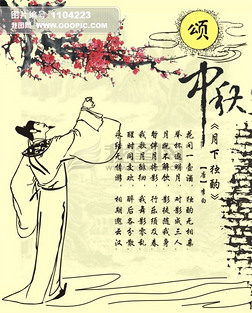 图片编号:1104223
颂
中秋
《月下独酌》
【唐】李白
花间一壶酒 独酌无相亲
举杯邀明月 对影成三人
月既不解饮 影徒随我身
暂伴月将影 行乐须及春
我歌月徘徊 我舞影零乱
醒时同交欢 醉后各分散
永结无情游 相期邈云汉